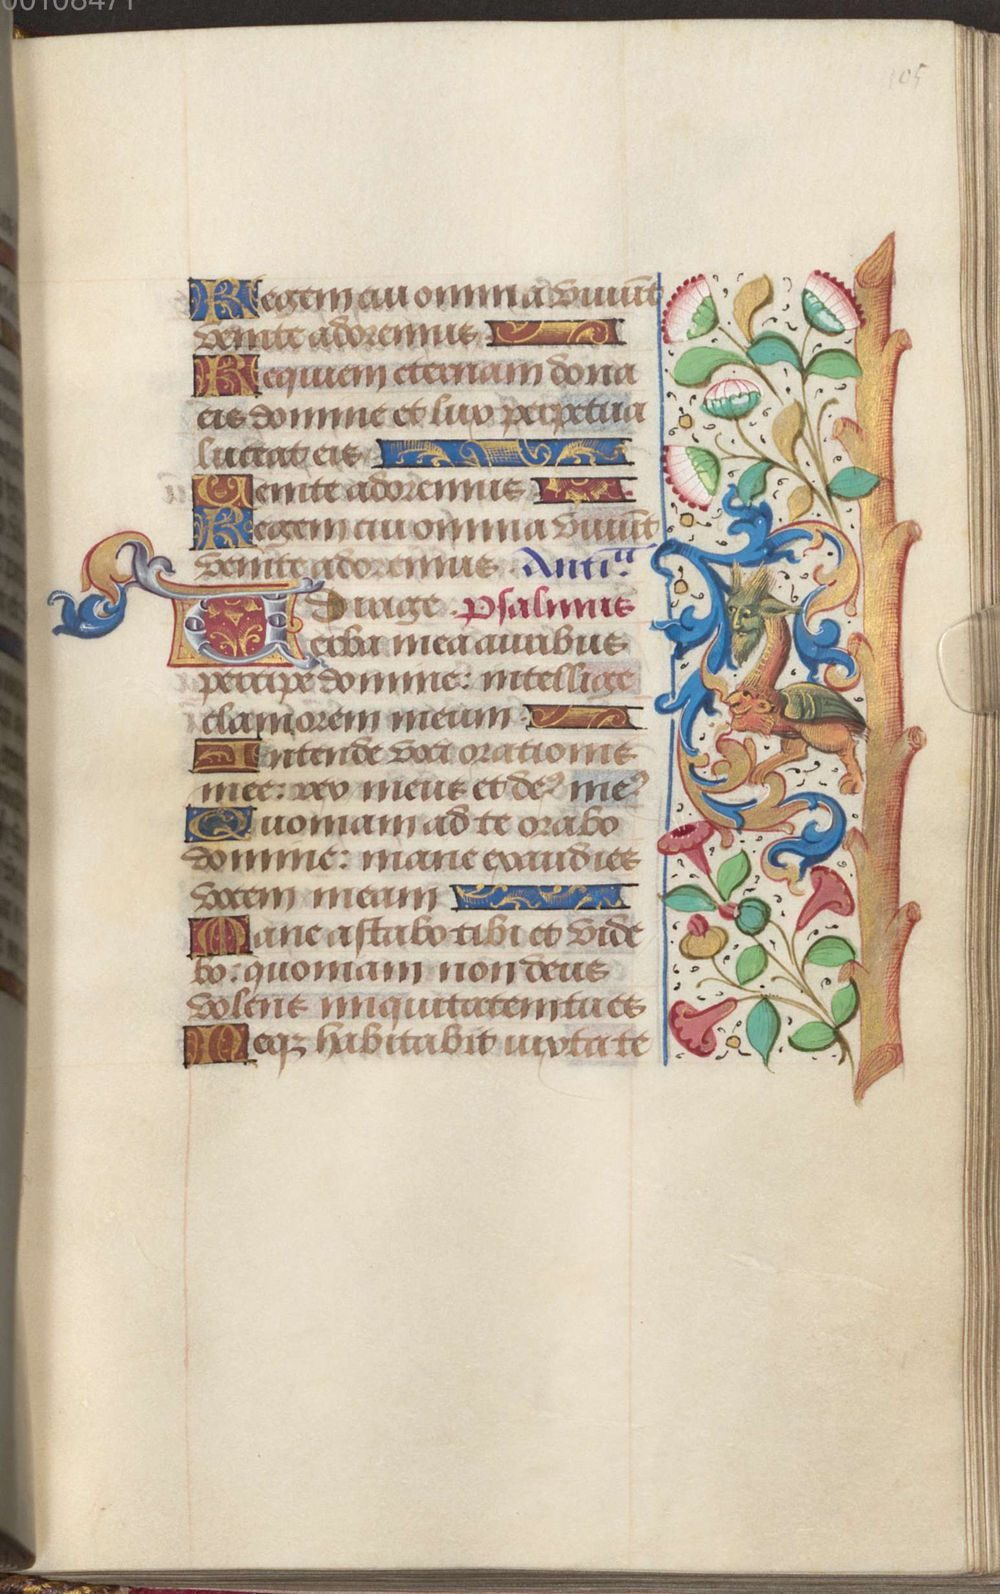 00108471
105
Regem cui omnia viuu͂t
venite adoremus
Requiem eternam dona
eis domine et lux perpetua
luceat eis
Uenite adoremus
Regem cui omnia viuu͂t
venite adoremus Anti.a
Dirige Psalmus
Uerba mea auribus
percipe domine: intellige
clamorem meum
Intende voci orationis
mee: rex meus et deꝰ meꝰ
Quoniam ad te orabo
domine: mane exaudies
vocem meam
Mane astabo tibi et vide
bo: quoniam non deus
volens iniquitatem tu es
Neqꝫ habitabit iuxta te